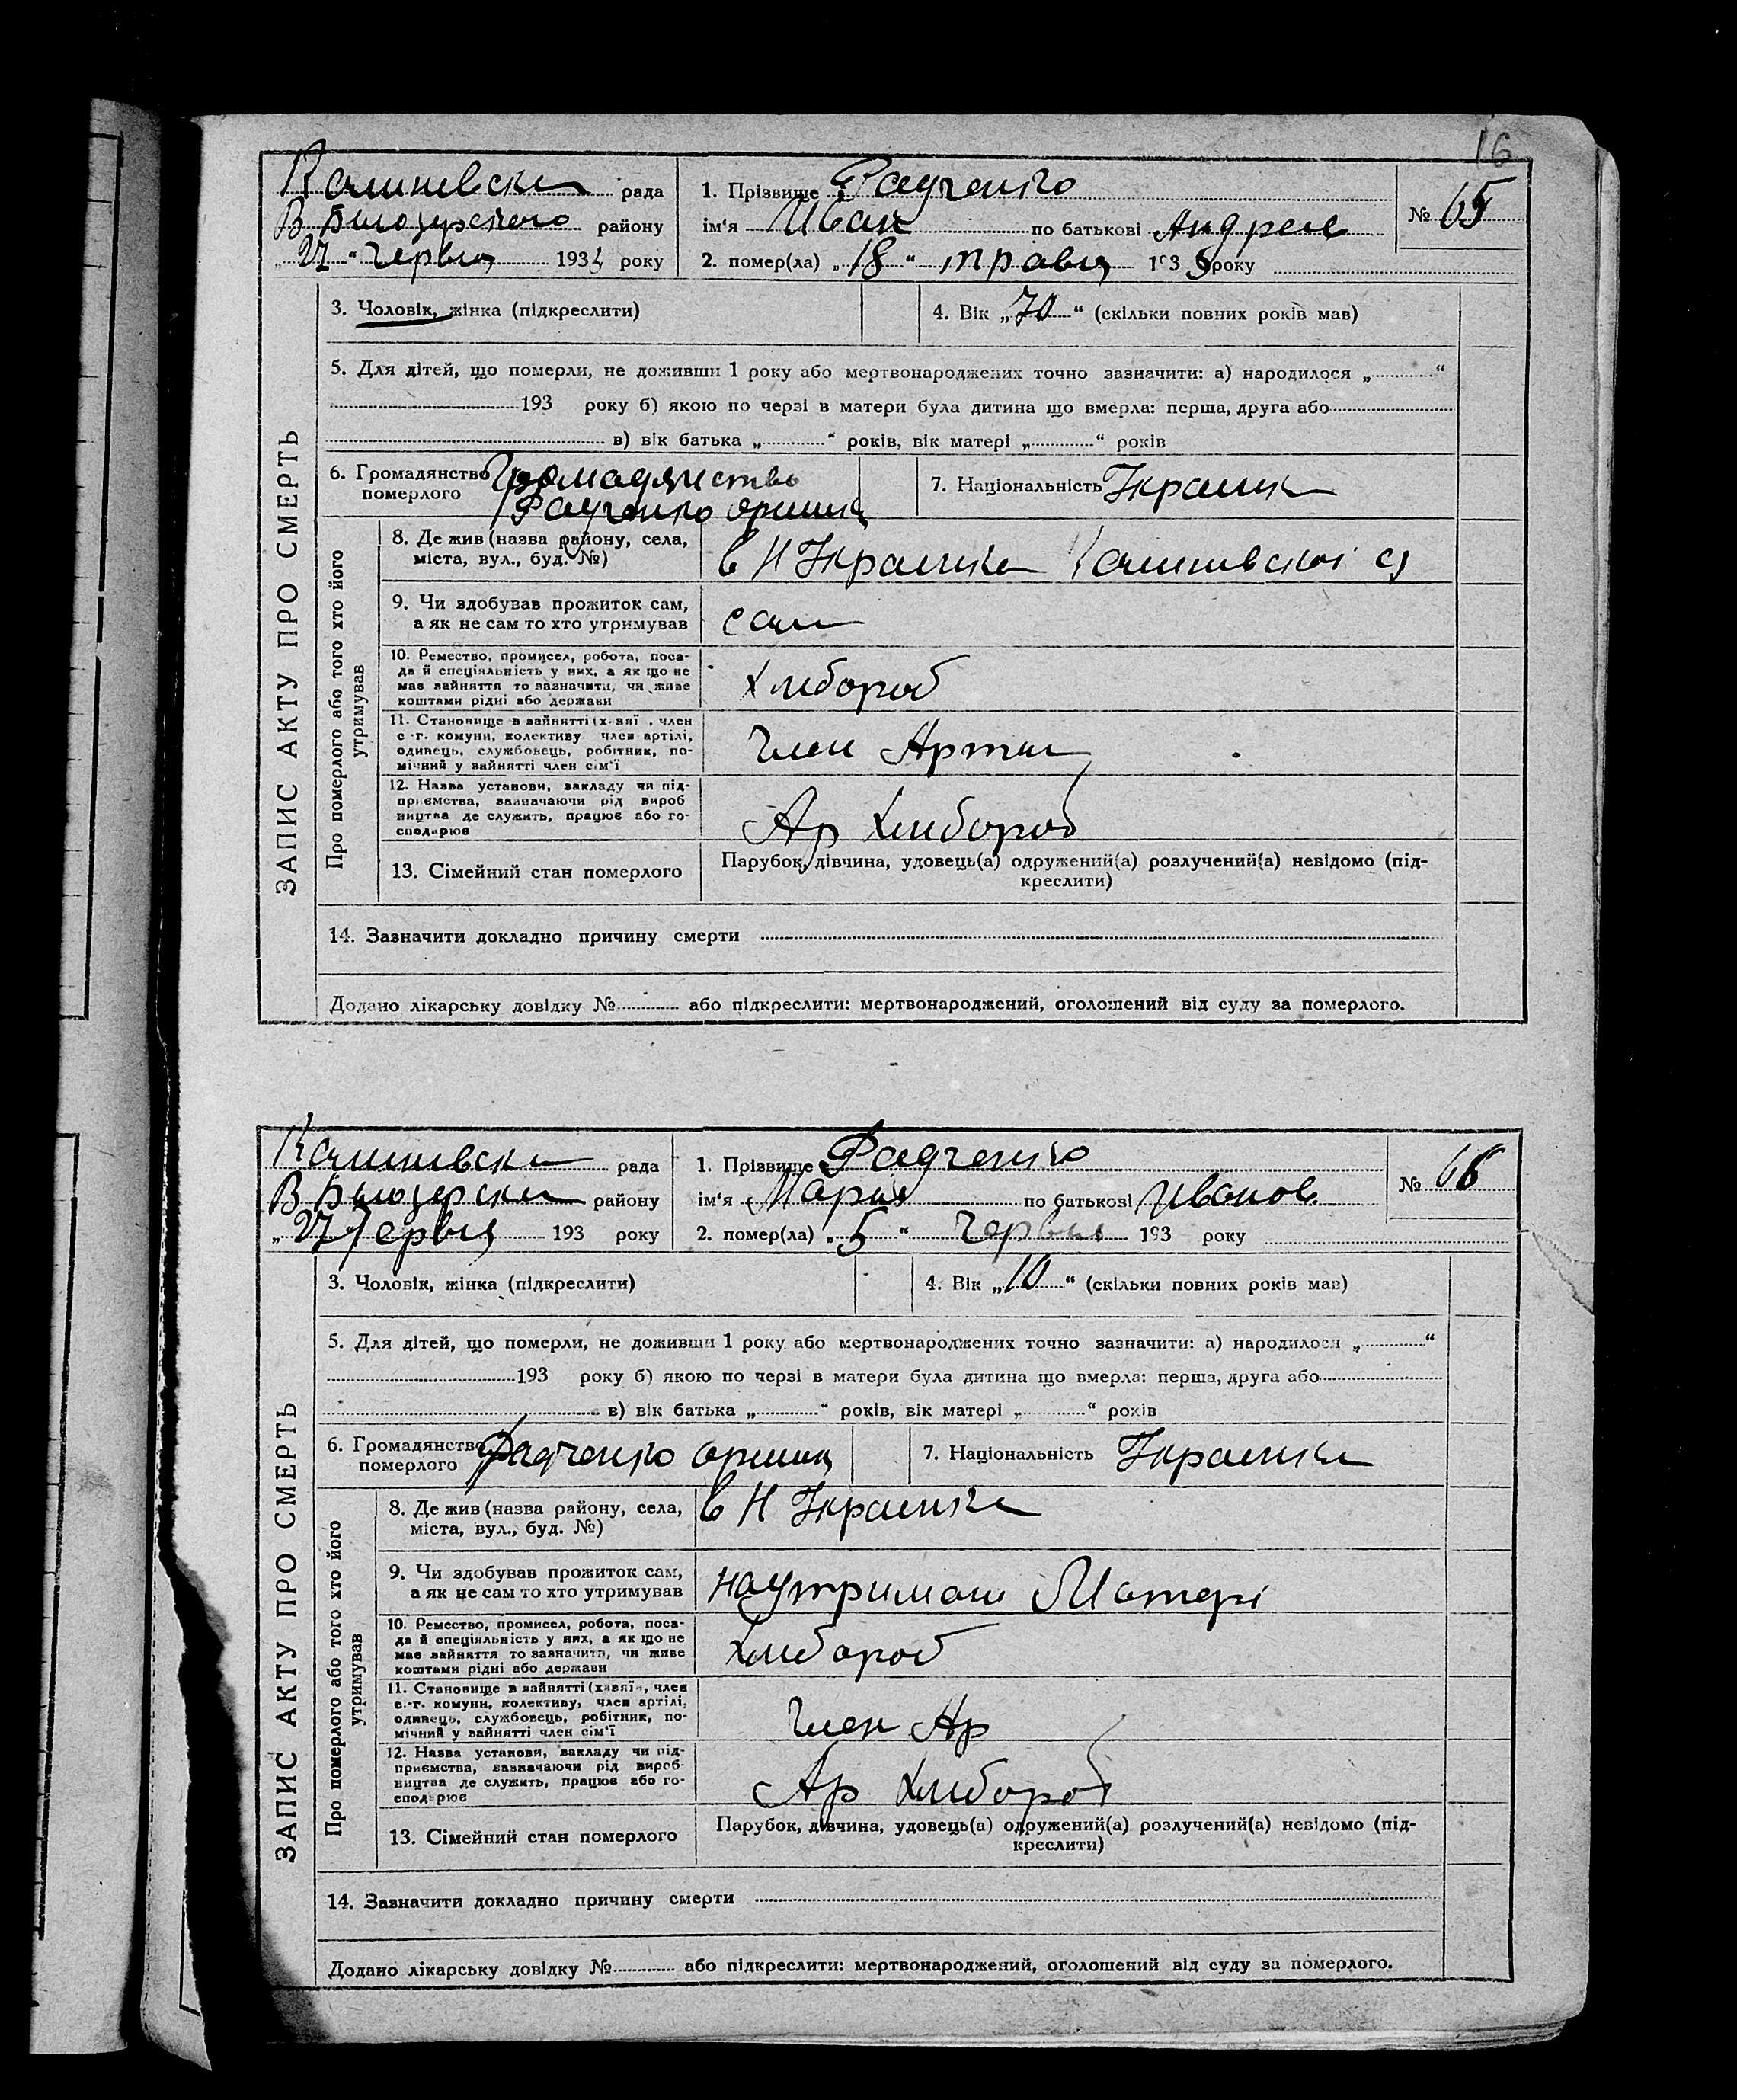 16
Калинивска рада
В Билозирского району
"27" Червня 1933 року
1. Прізвище Радченко
ім'я Иван по батькові Андреев
2. помер(ла) "18" травня 1933 року
№ 65
3. Чоловік, жінка (підкреслити)
4. Вік „70" (скільки повних років мав)
5. Для дітей, що померли, не доживши 1 року або мертвонароджених точно зазначити: а) народилося „ "
193 року б) якою по черзі в матери була дитина що вмерла: перша, друга або
в) вік батька „ " років, вік матері „ " років
6. Громадянство померлого Громадянство
Радченко
7. Національність Украинка
ЗАПИС АКТУ ПРО СМЕРТЬ
Про померлого або того хто його утримував
8. Де жив (назва району, села,
міста, вул., буд. №)
в Н Украинка Калинивскоі с
9. Чи здобував прожиток сам,
а як не сам то хто утримував
сам
10. Ремество, промисел, робота, поса-
да й спеціяльність у них, а як що не
має зайняття то зазначити, чи живе
коштами рідні або держави
Хлибороб
11. Становище в зайнятті (хазяї , член
с.-г. комуни, колективу член артілі,
одинець, службовець, робітник, по-
мічний у зайнятті член сім'ї
Член Артили
12. Назва установи, закладу чи під-
приємства, зазначаючи рід вироб
ництва де служить, працює або го-
сподарює
Ар Хлибороб
13. Сімейний стан померлого
Парубок, дівчина, удовець(а) одружений(а) розлучений(а) невідомо (під-
креслити)
14. Зазначити докладно причину смерти
Додано лікарську довідку № або підкреслити: мертвонароджений, оголошений від суду за померлого.
Калинивска рада
В Билозерска району
„27 Червня 193 року
1. Прізвище Радченко
ім'я Мария по батькові Иванов
2. помер(ла) „5" Червня 193 року
№ 66
3. Чоловік, жінка (підкреслити)
4. Вік „10" (скільки повних років мав)
5. Для дітей, що померли, не доживши 1 року або мертвонароджених точно зазначити: а) народилося „ "
193 року б) якою по черзі в матери була дитина що вмерла: перша, друга або
в) вік батька „ " років, вік матері „ " років
6. Громадянство померлого Радченко
7. Національність Украинка
ЗАПИС АКТУ ПРО СМЕРТЬ
Про померлого або того хто його утримував
8. Де жив (назва району, села,
міста, вул., буд. №)
в Н Украинка
9. Чи здобував прожиток сам,
а як не сам то хто утримував
на утримани Матері
10. Ремество, промисел, робота, поса-
да й спеціяльність у них, а як що не
має зайняття то зазначити, чи живе
коштами рідні або держави
Хлибороб
11. Становище в зайнятті (хазяїн, член
с.-г. комуни, колективу, член артілі,
одинець, службовець, робітник, по-
мічний у зайнятті член сім'ї
Член Ар
12. Назва установи, закладу чи під-
приємства, зазначаючи рід вироб-
ництва де служить, працює або го-
сподарює
Ар Хлибороб
13. Сімейний стан померлого
Парубок, дівчина, удовець(а) одружений(а) розлучений(а) невідомо (під-
креслити)
14. Зазначити докладно причину смерти
Додано лікарську довідку № або підкреслити: мертвонароджений, оголошений від суду за померлого.